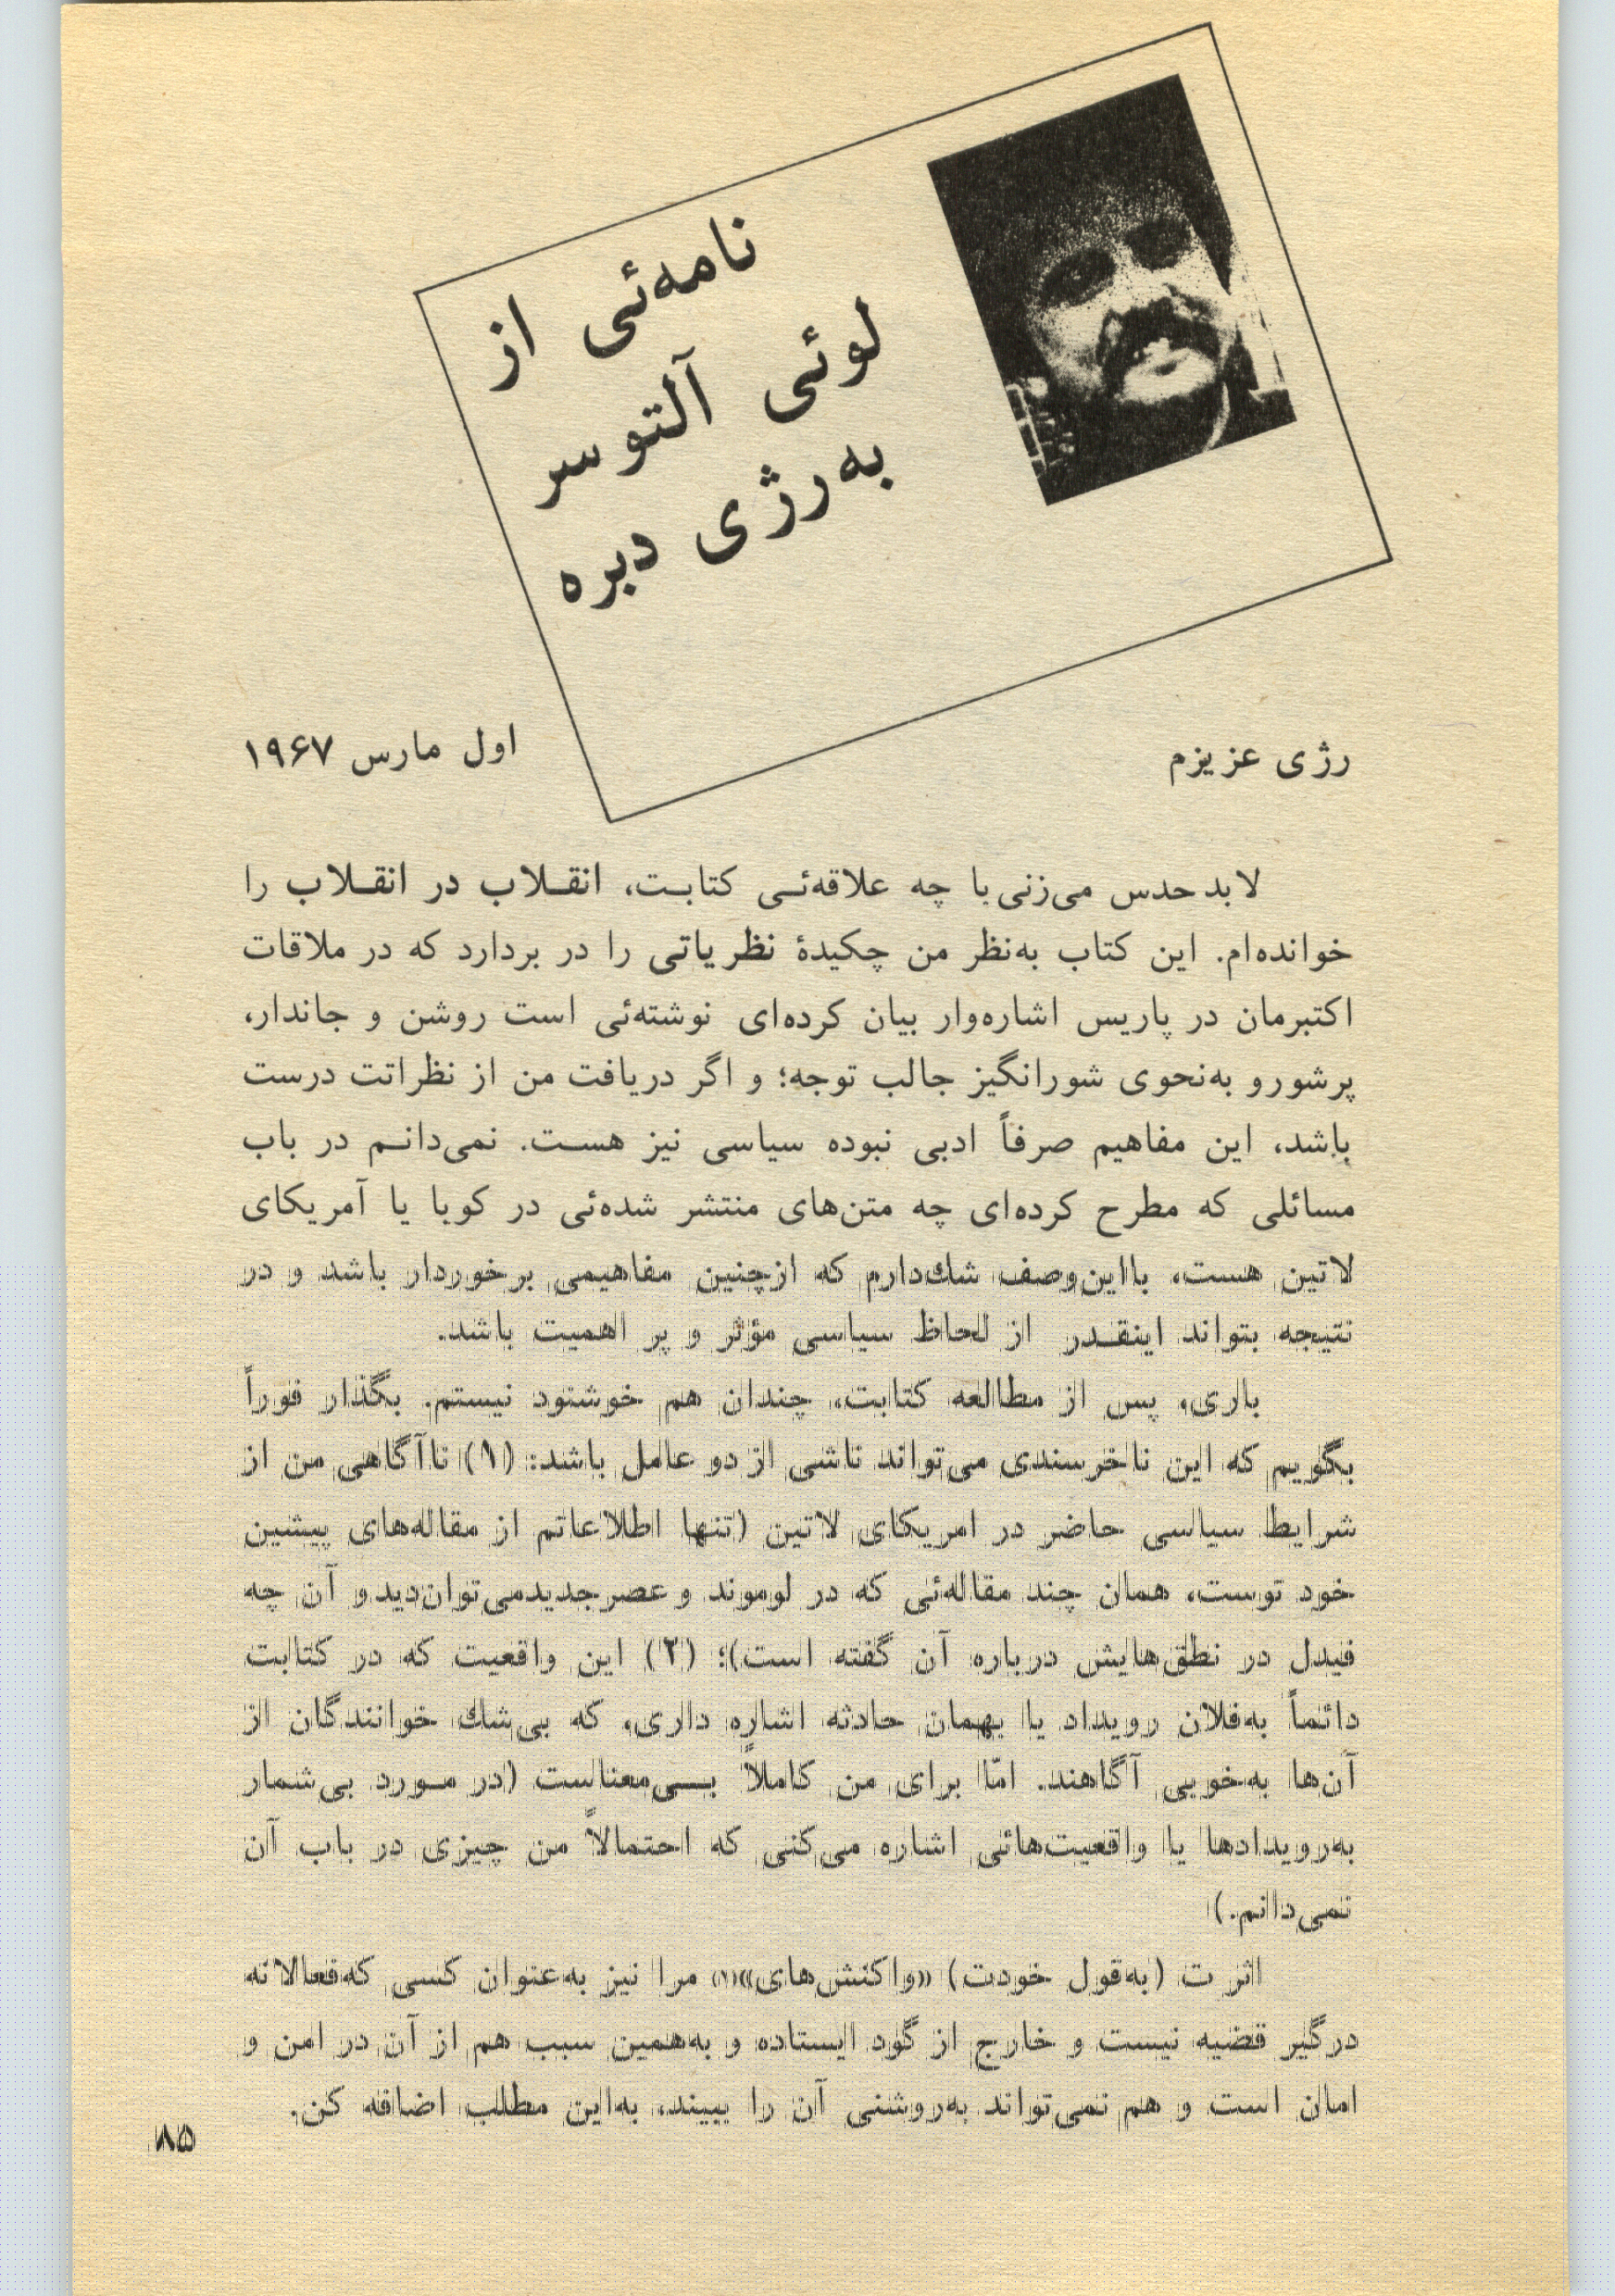 نامه‌ئی از
لوئی آلتوسر
به‌رژی دبره
رژی عزیزم
اول مارس ۱۹۶۷
لابد حدس می‌زنی با چه علاقه‌ئـی کتابـت، انقـلاب در انقـلاب را
خوانده‌ام. این کتاب به‌نظر من چکیدهٔ نظریاتی را در بردارد که در ملاقات
اکتبرمان در پاریس اشاره‌وار بیان کرده‌ای نوشته‌ئی است روشن و جاندار،
پرشورو به‌نحوی شورانگیز جالب توجه؛ و اگر دریافت من از نظراتت درست
باشد، این مفاهیم صرفاً ادبی نبوده سیاسی نیز هسـت. نمی‌دانـم در باب
مسائلی که مطرح کرده‌ای چه متن‌های منتشر شده‌ئی در کوبا یا آمریکای
لاتین هست، بااین‌وصف شك‌دارم که ازچنین مفاهیمی برخوردار باشد و در
نتیجه بتواند اینقـدر از لحاظ سیاسی مؤثر و پر اهمیت باشد.
باری، پس از مطالعه کتابت، چندان هم خوشنود نیستم. بگذار فوراً
بگویم که این ناخرسندی می‌تواند ناشی از دو عامل باشد: (۱) ناآگاهی من از
شرایط سیاسی حاضر در امریکای لاتین (تنها اطلاعاتم از مقاله‌های پیشین
خود توست، همان چند مقاله‌ئی که در لوموند و عصرجدیدمی‌توان‌دیدو آن چه
فیدل در نطق‌هایش درباره آن گفته است)؛ (۲) این واقعیت که در کتابت
دائماً به‌فلان رویداد یا بهمان حادثه اشاره داری، که بی‌شك خوانندگان از
آن‌ها به‌خوبی آگاهند. امّا برای من کاملاً بـی‌معناست (در مـورد بی‌شمار
به‌رویدادها یا واقعیت‌هائی اشاره می‌کنی که احتمالاً من چیزی در باب آن
نمی‌دانم.)
اثرت (به‌قول خودت) «واکنش‌های»(۱) مرا نیز به‌عنوان کسی که‌فعالانه
درگیر قضیه نیست و خارج از گود ایستاده و به‌همین سبب هم از آن در امن و
امان است و هم نمی‌تواند به‌روشنی آن را ببیند، به‌این مطلب اضافه کن.
۸۵